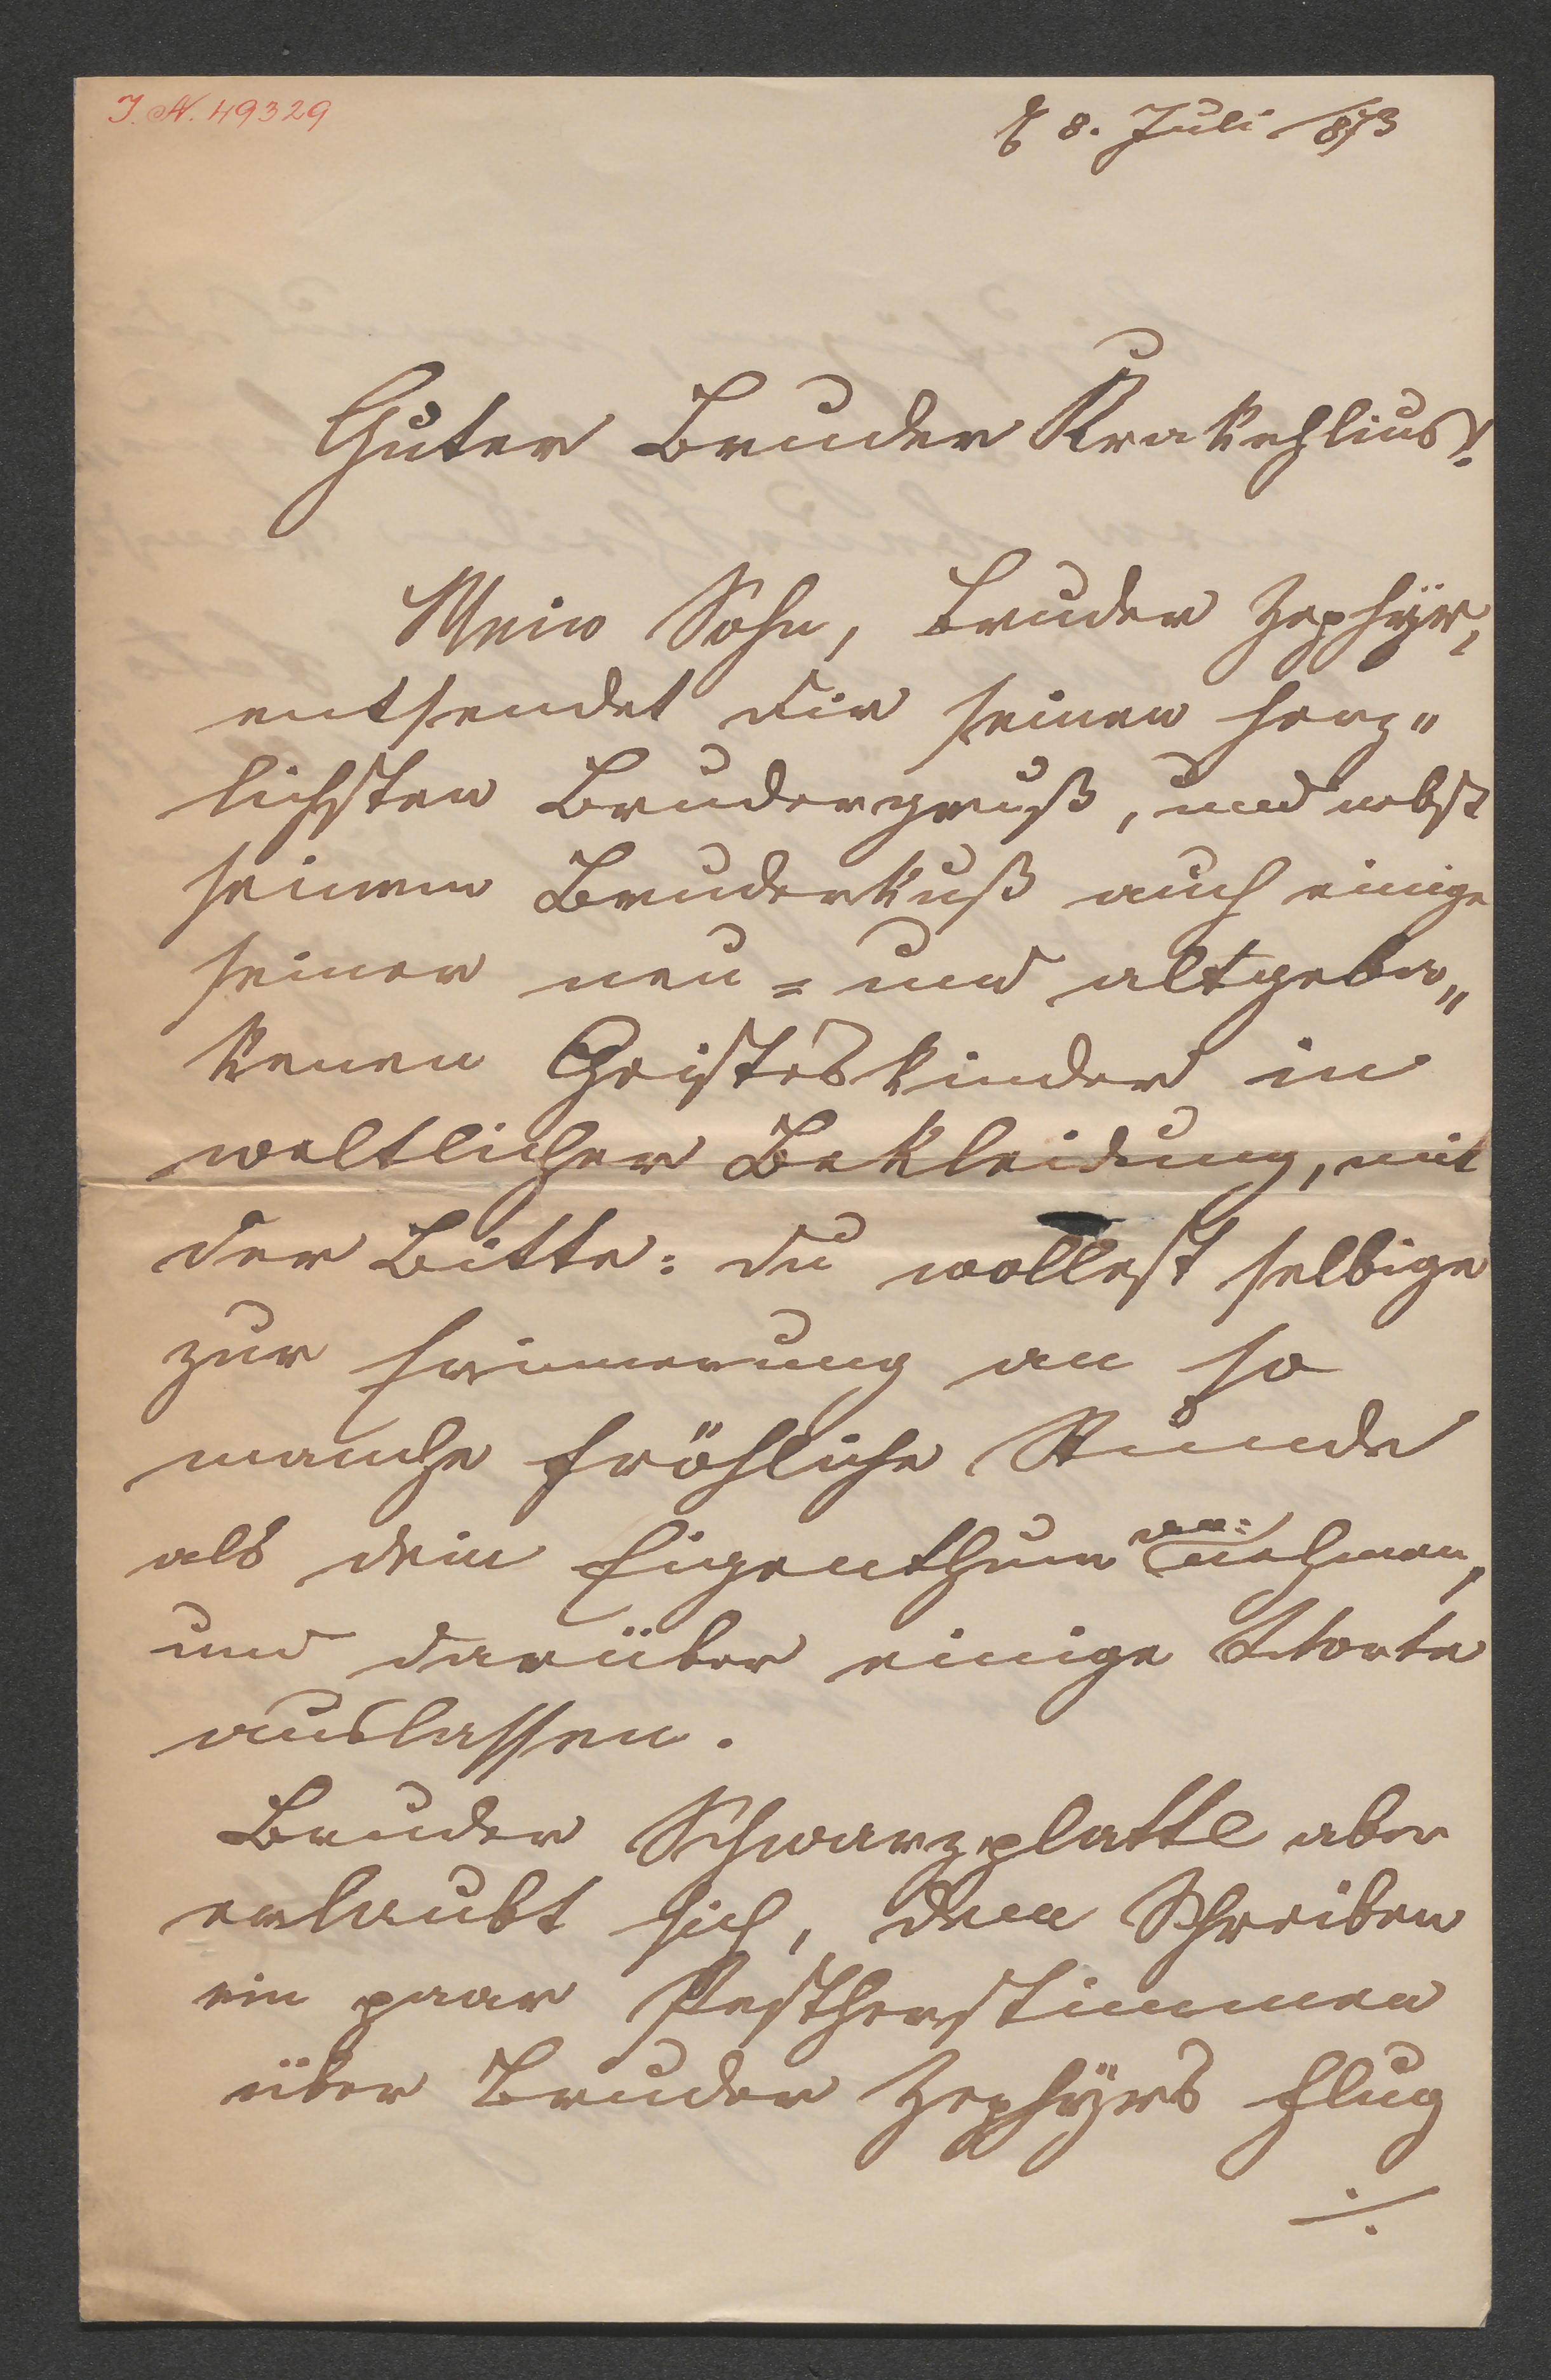 I. N. 49329
8. Juli 1873
Guter Bruder Krakehlius!
Mein Sohn, Bruder Zephÿr,
entsendet dir seinen herz„
lichsten Brudergruß, und nebst
seinem Bruderkuß auch einige
seiner neu= und altgeba„
kenen Geisteskinder in
weltlicher Bekleidung, mit
der Bitte: du wollest selbige
zur Erinnerung an so
manche fröhliche Stunde
als dein Eigenthum an=nehmen,
und darüber einige Worte
auslassen.
Bruder Schwarzplatte aber
erlaubt sich, dem Schreiben
ein paar Pestherstimmen
über Bruder Zephÿrs Flug
./.